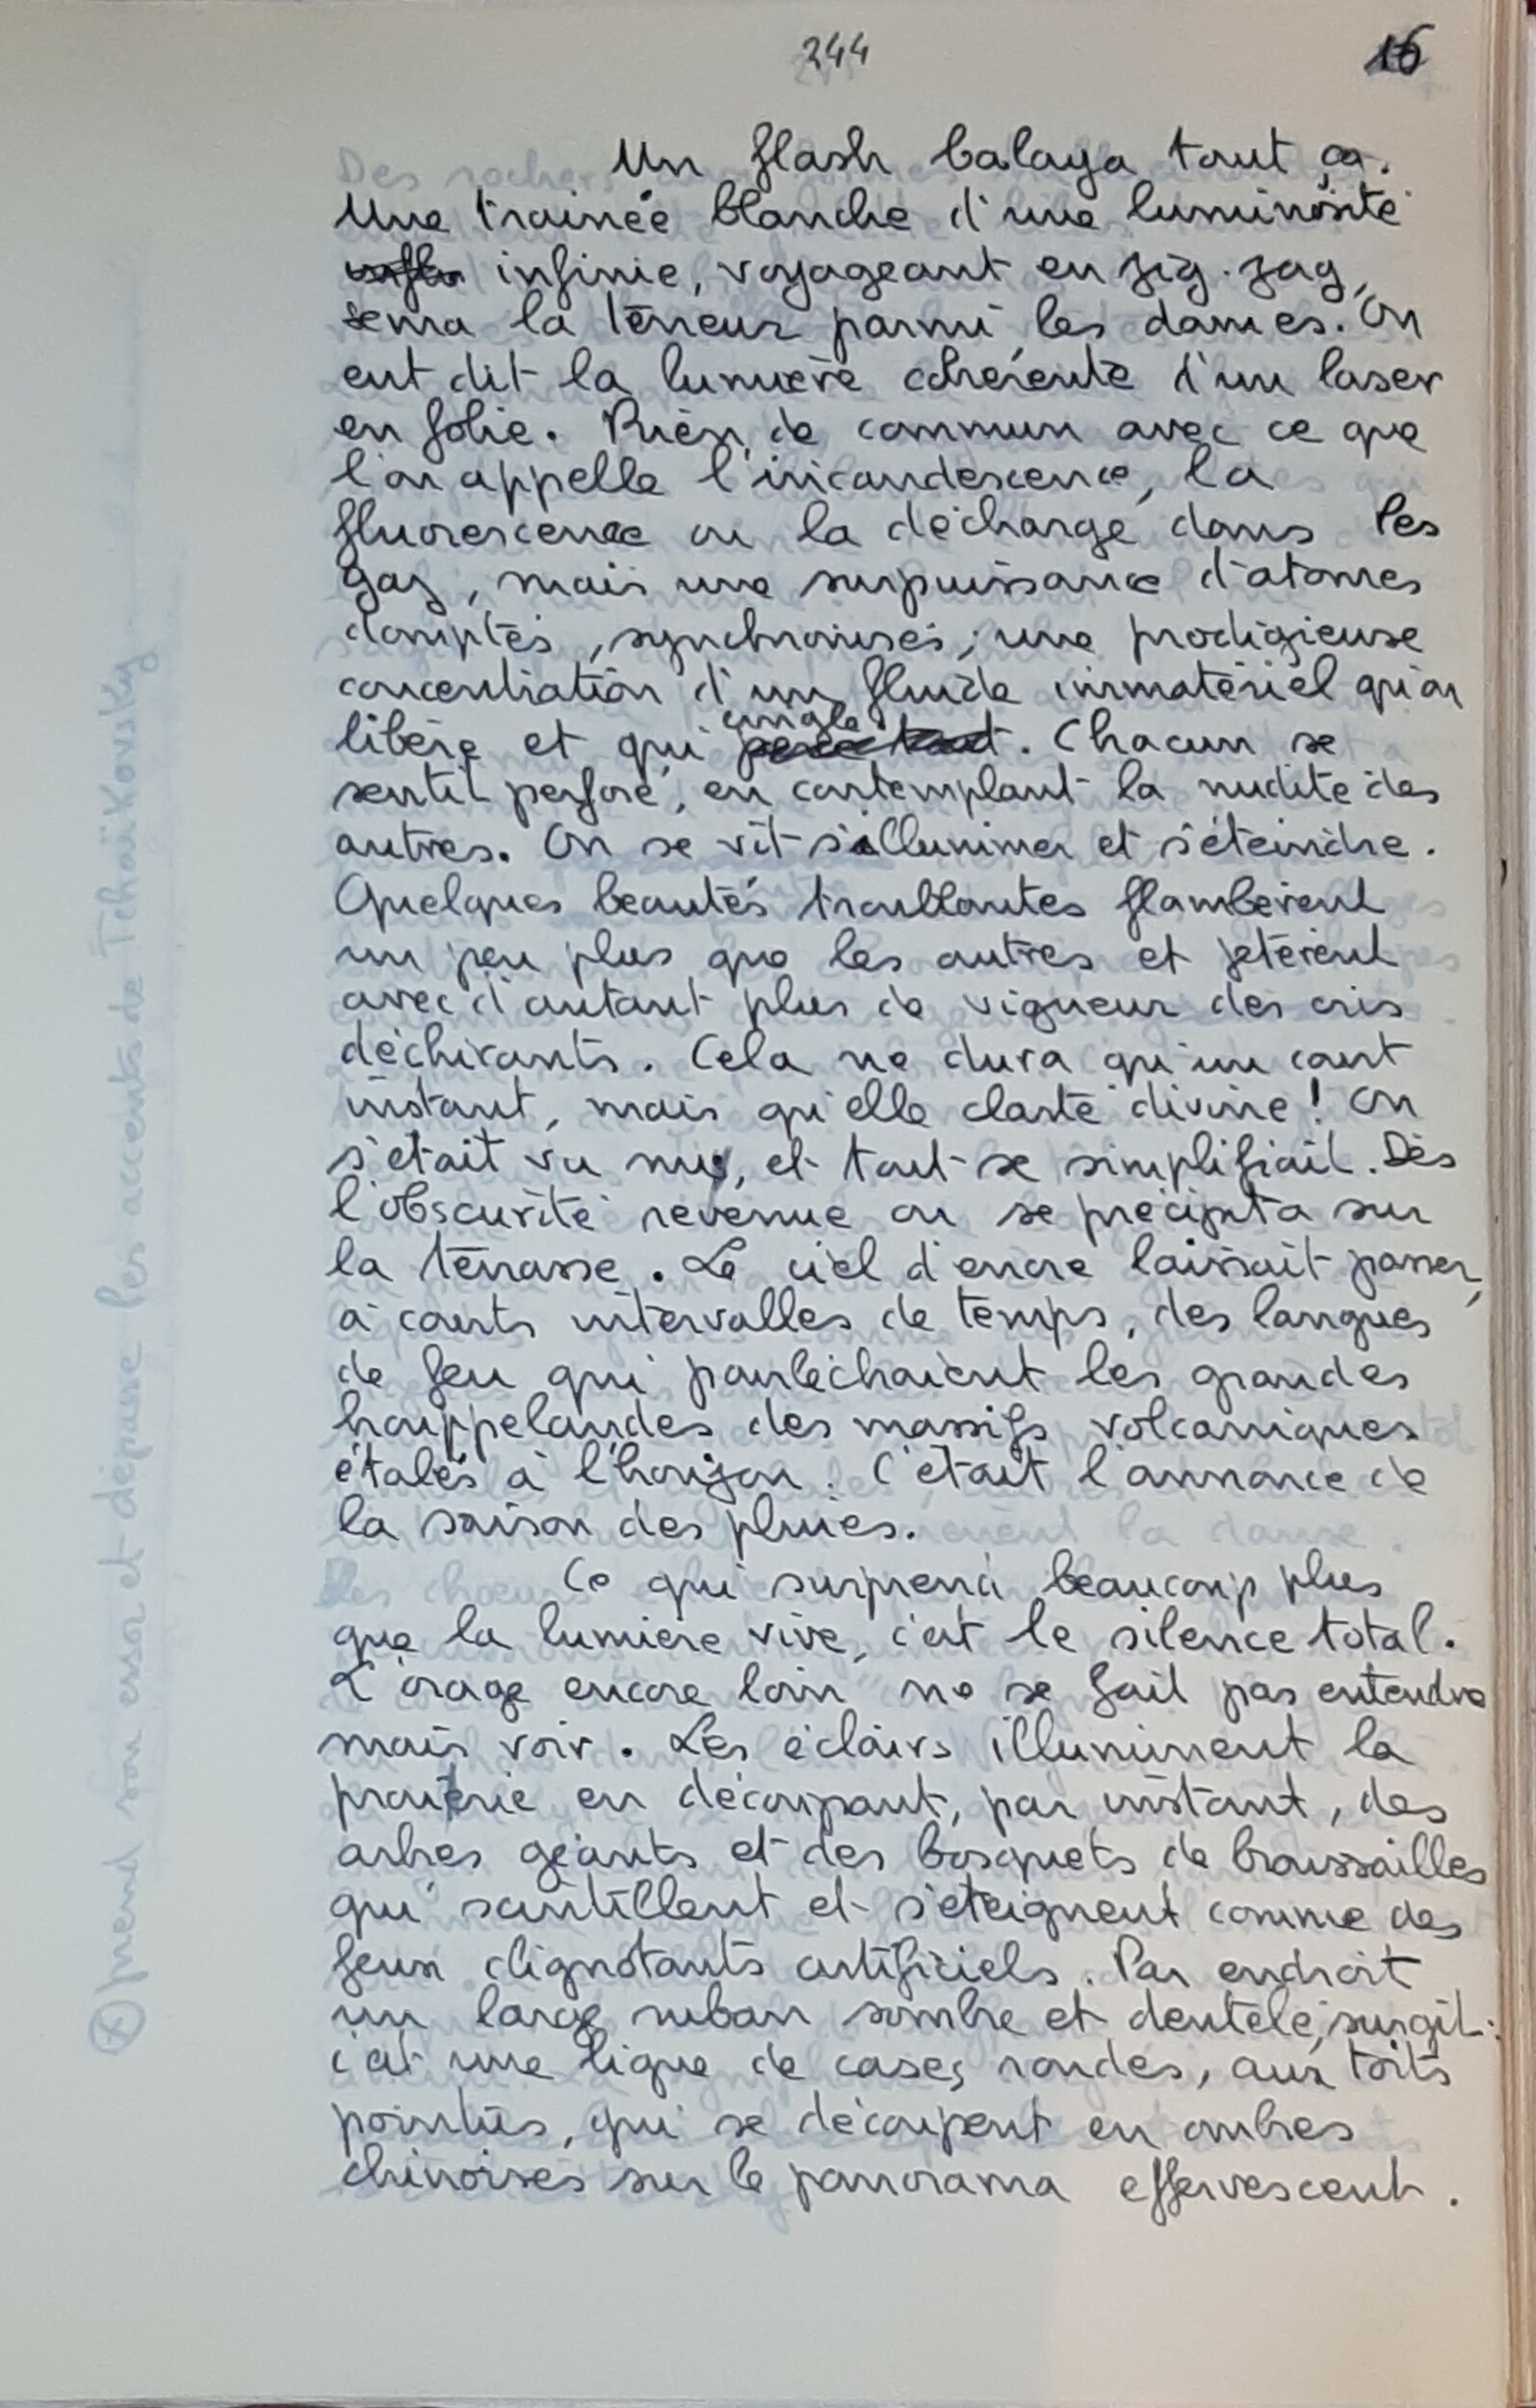 244
16
Un flash balaya tout ça.
Une trainée blanche d'une luminosité
infinie, voyageant en zig-zag,
sema la terreur parmi les dames. On
eut dit la lumière cohérente d'un laser
en folie. Rien de commun avec ce que
l'on appelle l'incandescence, la
fluorescence ou la décharge dans les
gaz, mais une surpuissance d'atomes
domptés, synchronisés; une prodigieuse
concentration d'un fluide immatériel qu'on
libère et qui cingla. Chacun se
sentit perforé, en contemplant la nudité des
autres. On se vit s'illuminer et s'éteindre.
Quelques beautés troublantes flambèrent
un peu plus que les autres et jetèrent
avec d'autant plus de vigueur des cris
déchirants. Cela ne dura qu'un court
instant, mais qu'elle clarté divine! On
s'était vu nus, et tout se simplifiait. Dès
l'obscurité revenue on se précipita sur
la terrasse. Le ciel d'encre laissait passer,
à courts intervalles de temps, des langues
de feu qui pourléchaient les grandes
houppelandes des massifs volcaniques
étalés à l'horizon. C'était l'annonce de
la saison des pluies.
Ce qui surprend beaucoup plus
que la lumière vive, c'est le silence total.
L'orage encore loin ne se fait pas entendre
mais voir. Les éclairs illuminent la
prairie en découpant, par instant, des
arbres géants et des bosquets de broussailles
qui scintillent et s'éteignent comme des
feux clignotants artificiels. Par endroit
un large ruban sombre et dentelé, surgit:
c'est une ligne de cases rondes, aux toits
pointus, qui se découpent en ombres
chinoises sur le panorama effervescent.
prend son essor et dépasse les accents de Tchaïkovsky